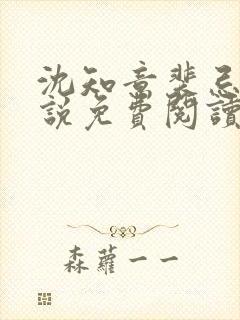 沈知意裴忌
說免費閱讀
森蘿一一